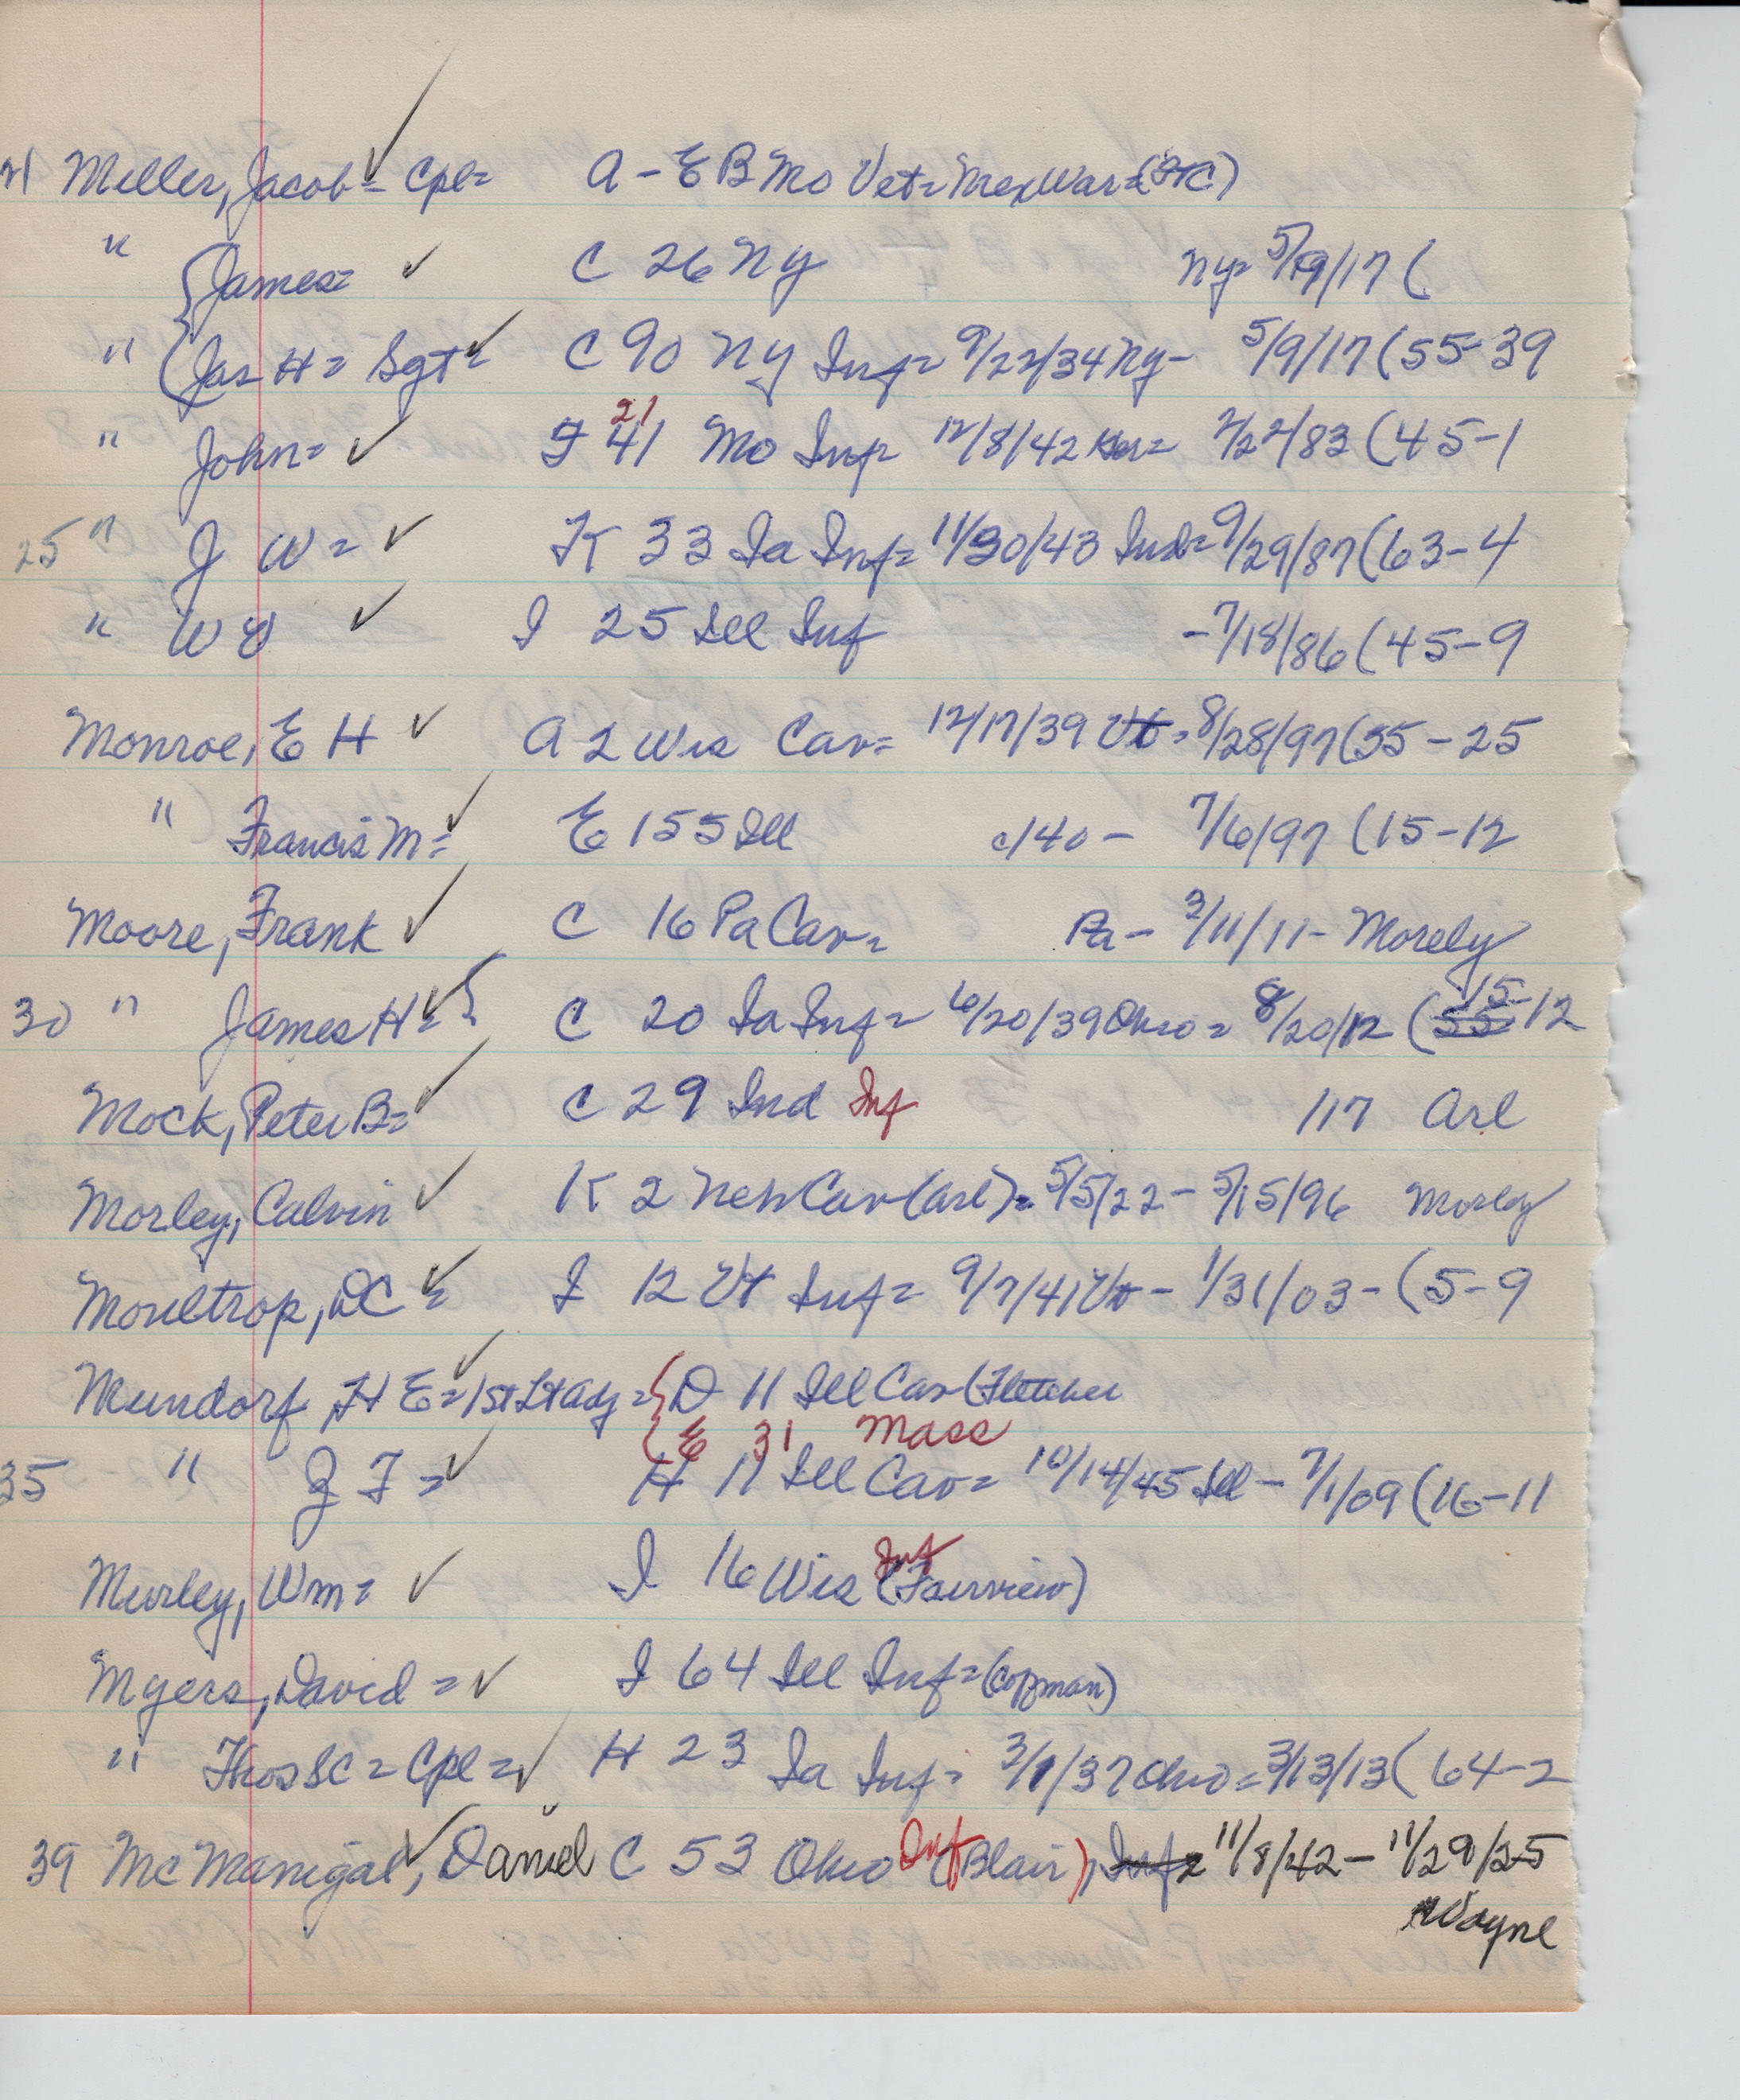 21 Miller, Jacob = Cpl = A - E B Mo Vet = Mex War = (FtC)
" James = ✓ C 26 Ny Ny = 5/19/17 (
" (Jas H = Sgt = ✓ C 90 Ny Inf = 9/22/34 Ny - 5/9/17 (55-39
21
" John = ✓ F 41 Mo Inf = 12/8/42 = 2/22/83 (45-1
25 " J W = ✓ K 33 Ia Inf = 11/30/43 Ind = 9/29/87 (63-4
" W ✓ I 25 Ill Inf - 7/18/86 (45-9
Monroe, E H ✓ A 2 Wis Cav = 12/17/39 Vt = 8/28/97 (55-25
" Francis M = ✓ E 155 Ill c/40 - 7/6/97 (15-12
Moore, Frank ✓ C 16 Pa Cav = Pa - 3/11/11 - Morely
30 " James H = ✓ } C 20 Ia Inf = 6/20/39 Ohio = 8/20/12 (55 15-12
Mock, Peter B = ✓ C 29 Ind Inf /17 Arl
Morley, Calvin ✓ K 2 Neb Cav (Arl) = 5/5/22 - 5/15/96 Morley
Moultrop, DC = ✓ I 12 Vt Inf = 9/7/41 Vt - 1/31/03 - (5-9
Mundorf, H E = 1st Lt Adj = { D 11 Ill Cav (Fletcher
{ E 31 Mass
35 " Z F = ✓ H 11 Ill Cav = 10/14/45 Ill - 7/1/09 (16-11
Murley, Wm = ✓ I 16 Wis Inf (Fairview)
Myers, David = ✓ I 64 Ill Inf = (Coffman)
" Thos SC = Cpl = ✓ H 23 Ia Inf = 3/1/37 Ohio = 3/13/13 (64-2
39 McManigal ✓, Daniel C 53 Ohio Inf (Blair), Inf = 11/8/42 - 11/29/25
Wayne